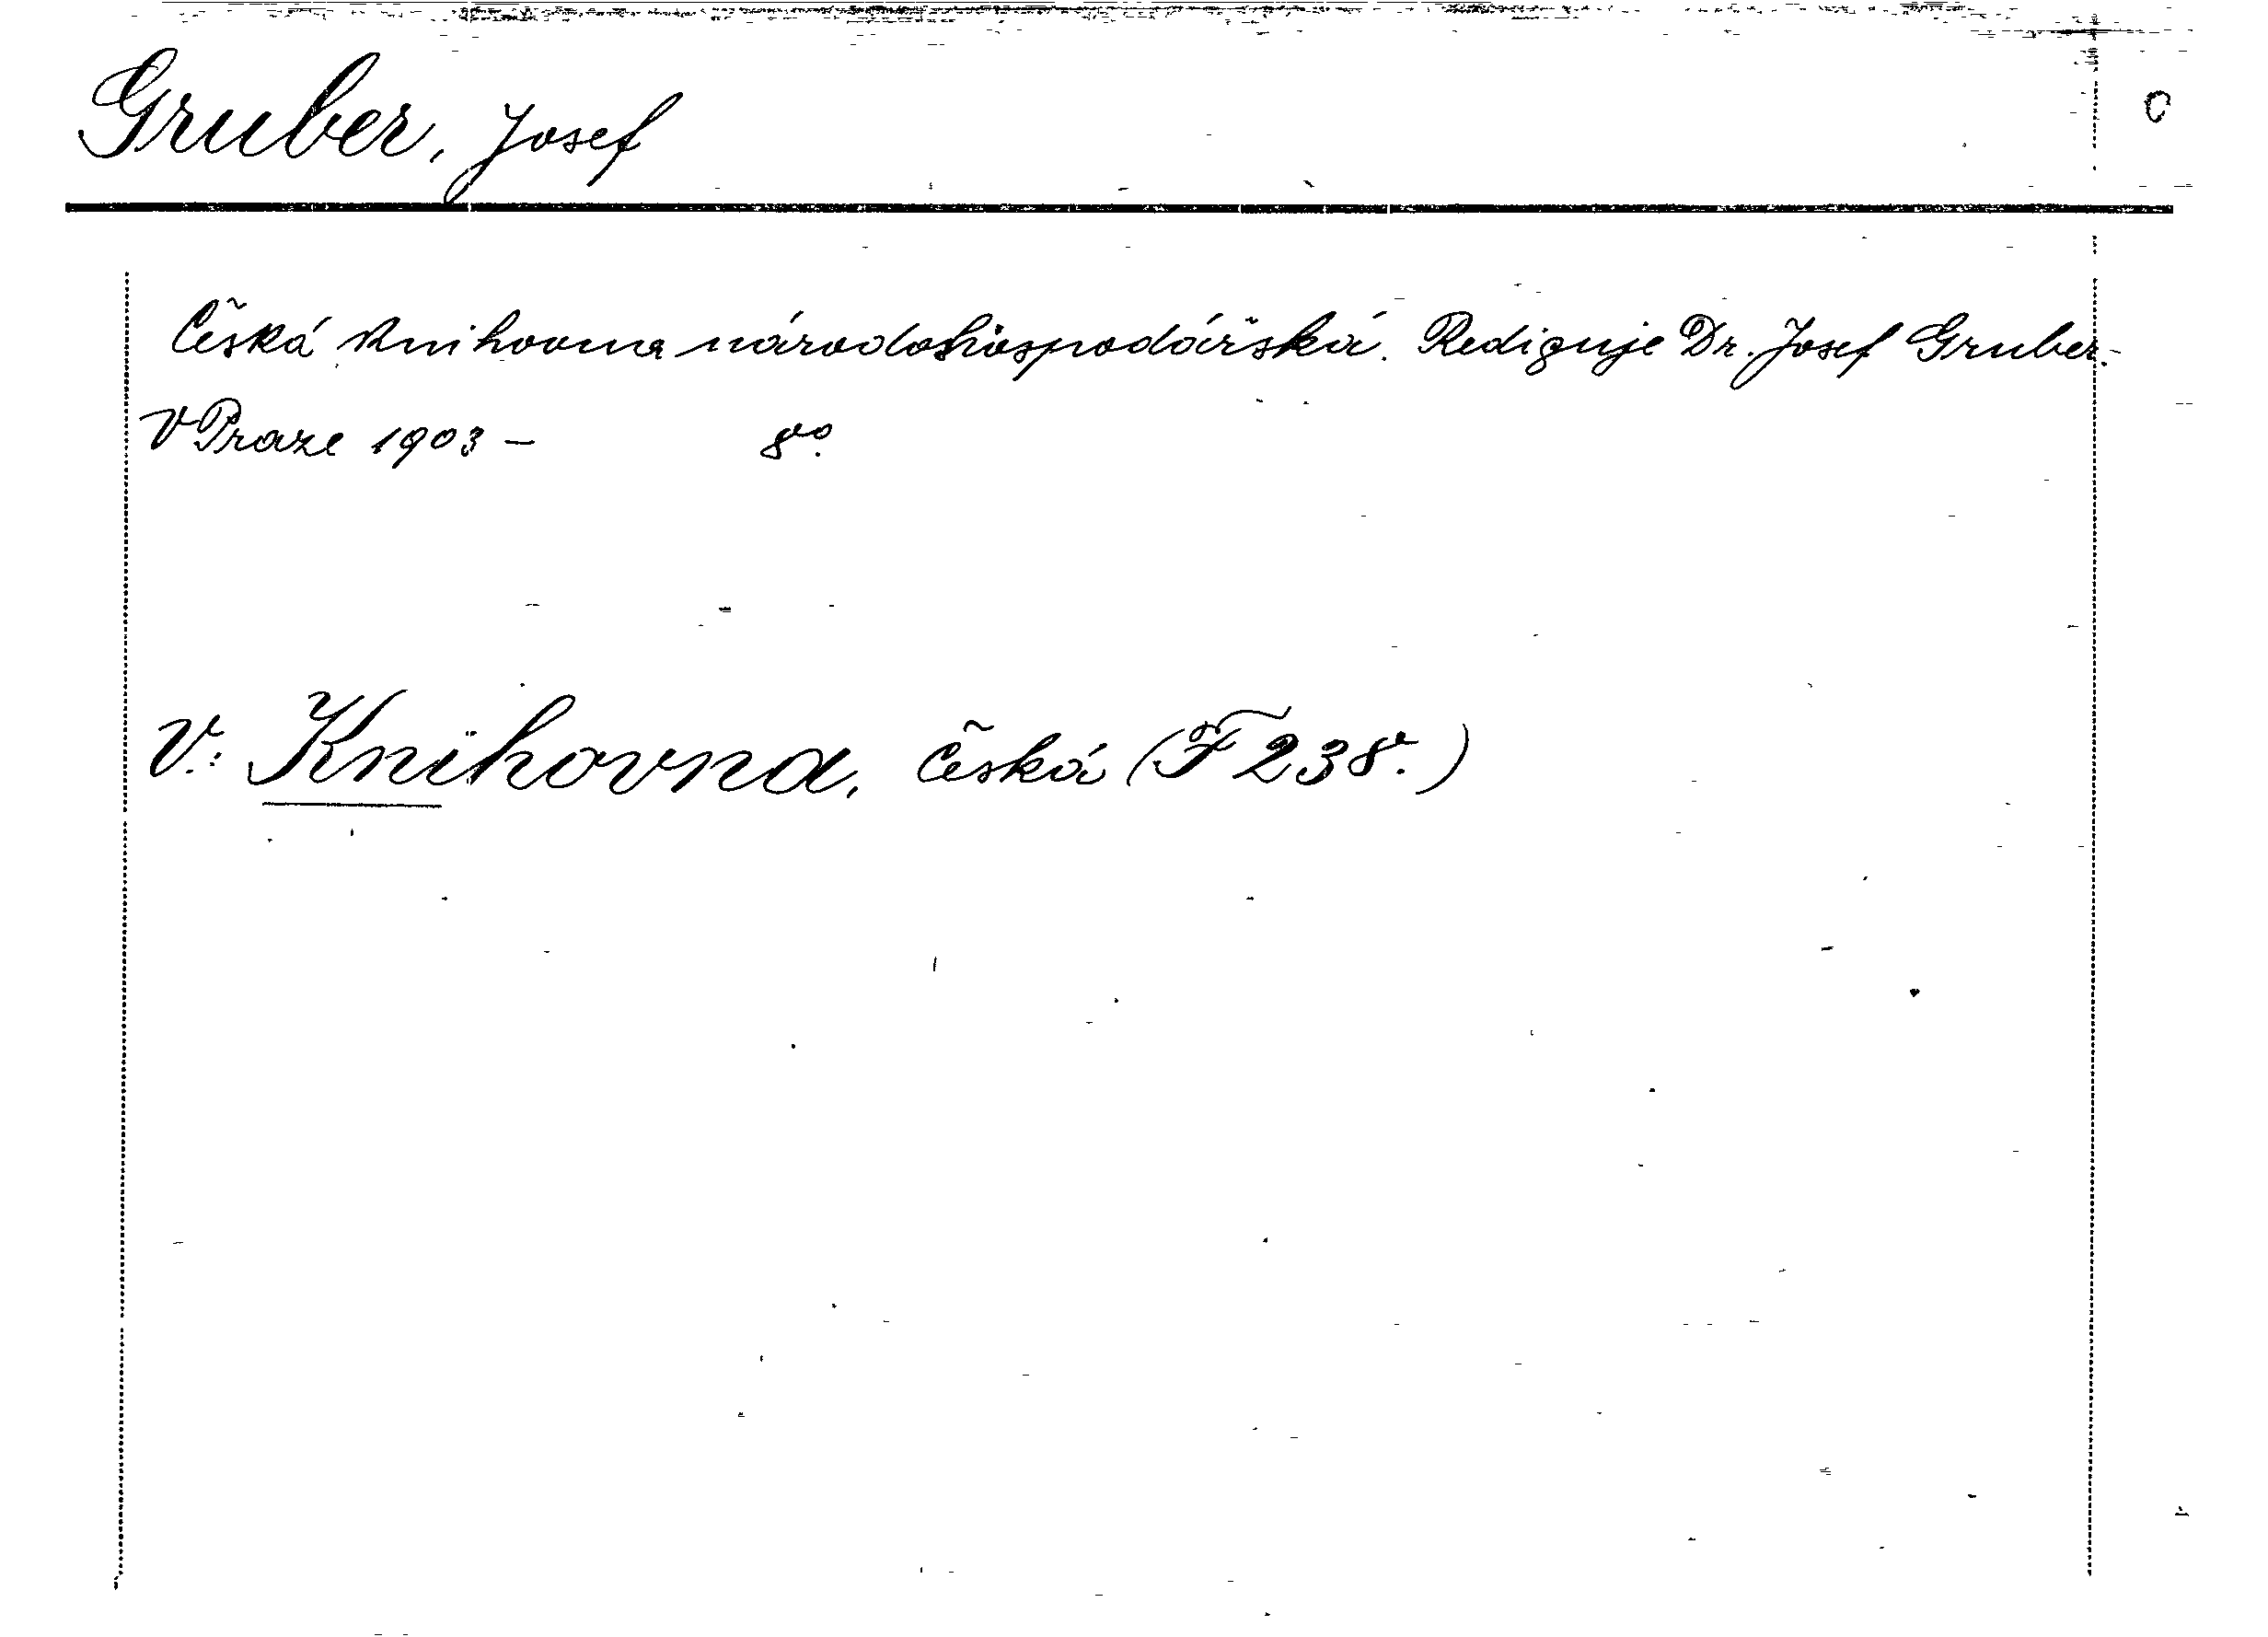 Gruber, Josef
C
Česká knihovna národohospodářská. Rediguje Dr. Josef Gruber.
V Praze 1903 - 8º.
V.: Knihovna, česká (F 238.)